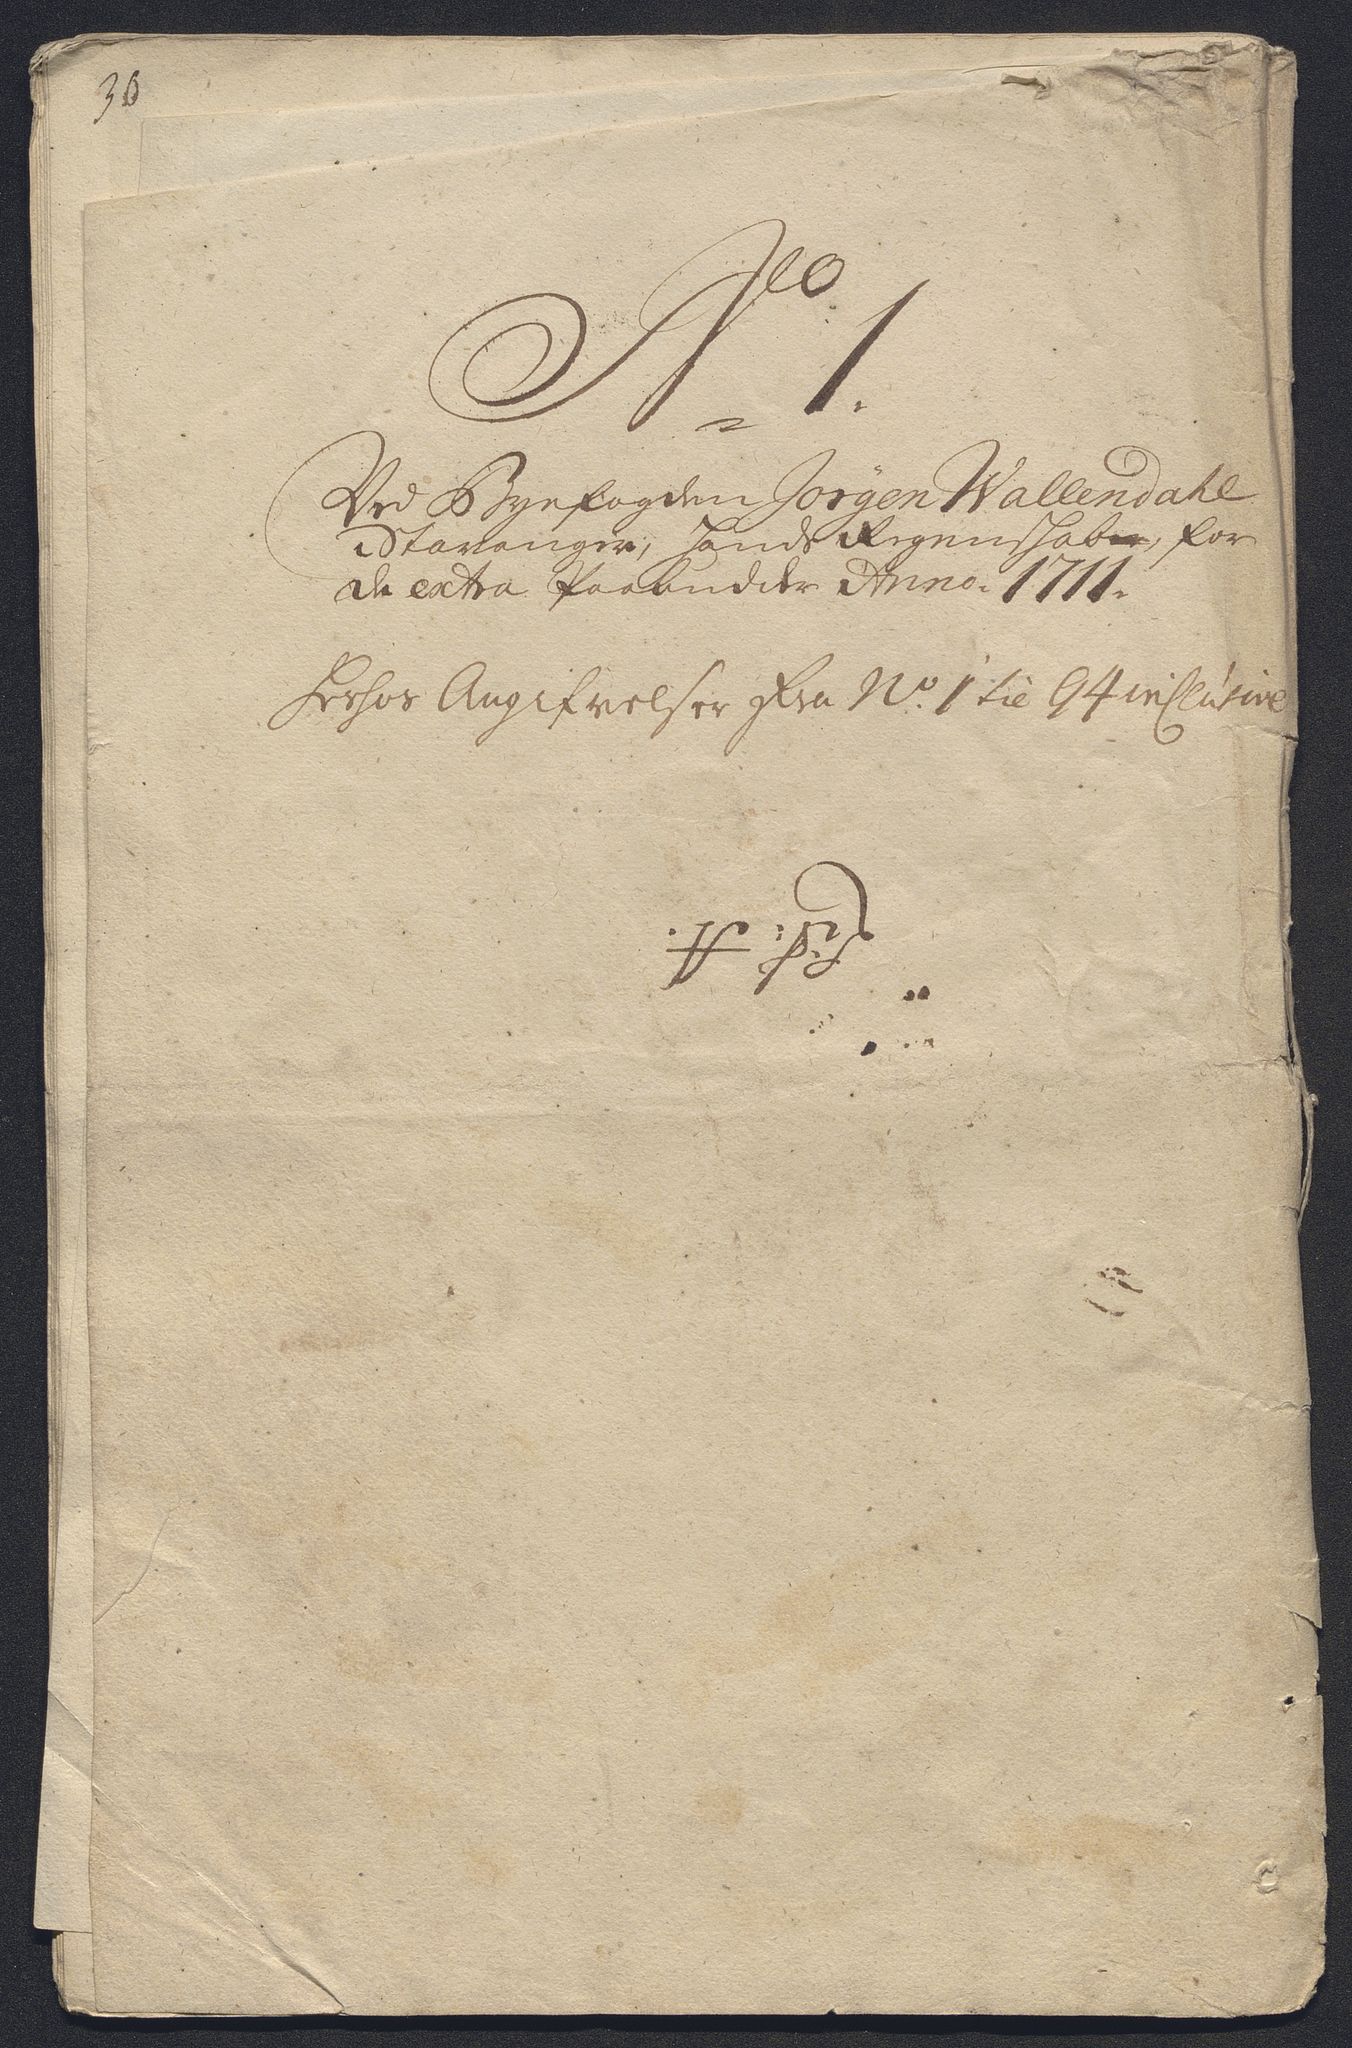 No 1.
Ved Byefogden Jorgen Wallendahl
i Stavanger, hands Regenskaber, for
de extra Paabudder Anno. 1711.
Herhos Angifvelser Fra No. 1 til 94 inclusive
Lit: A.